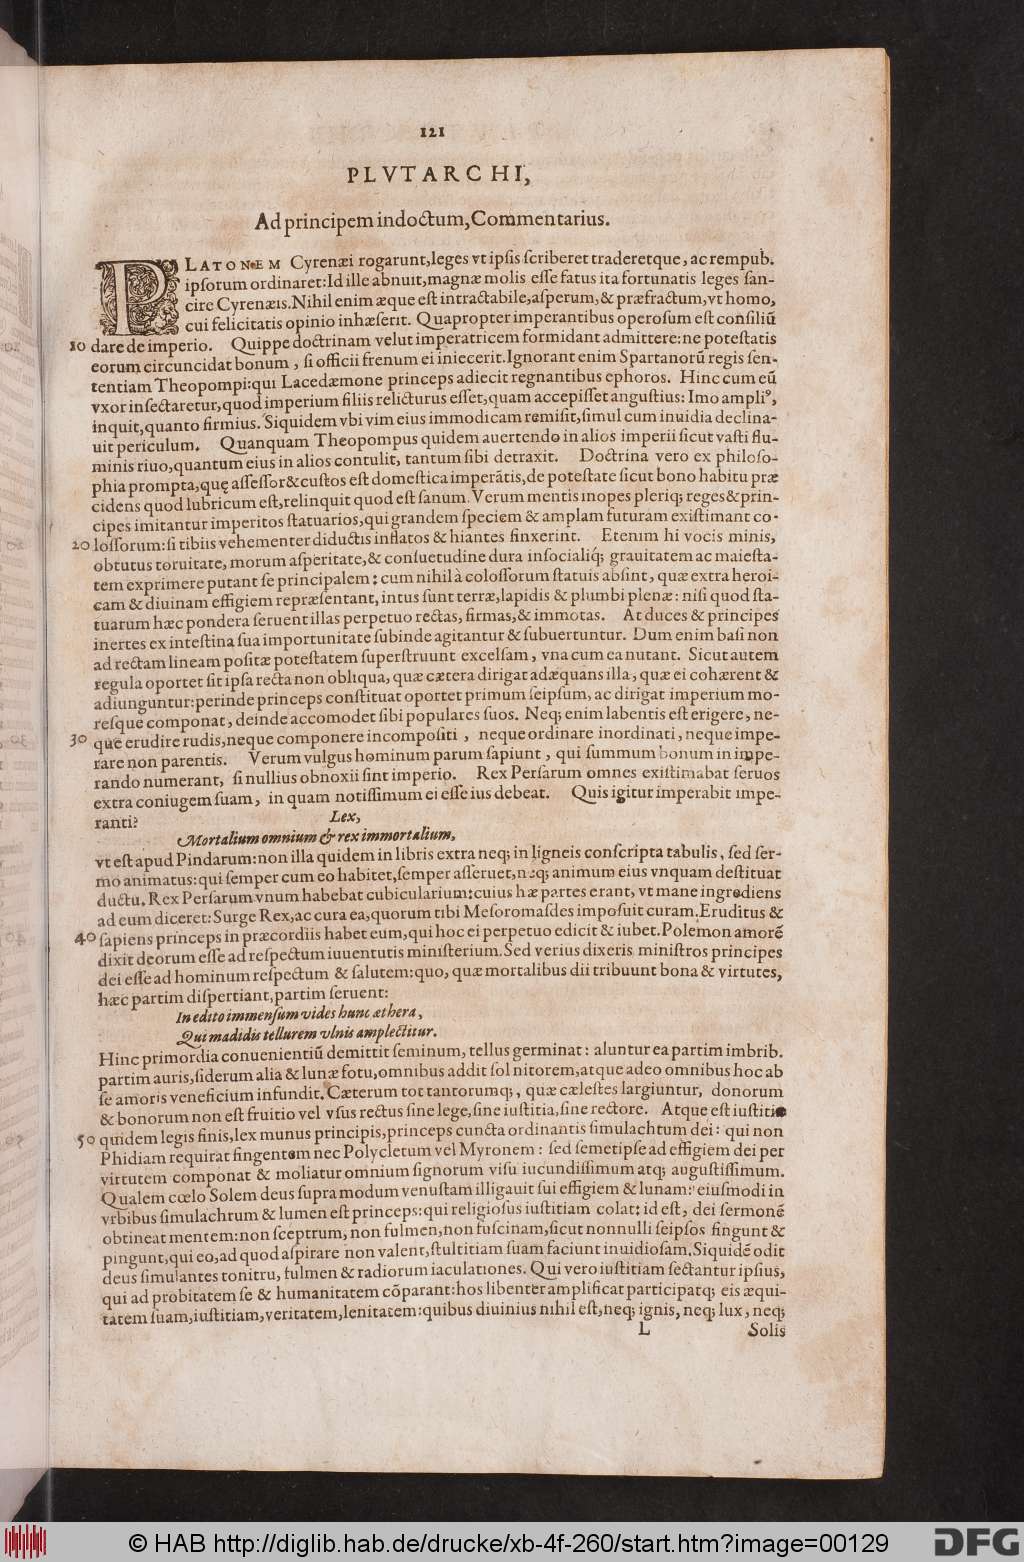 121
PLVTARCHI,
Ad principem indoctum, Commentarius.
PLATONEM Cyrenæi rogarunt, leges vt ipsis scriberet traderetque, ac rempub.
ipsorum ordinaret: Id ille abnuit, magnæ molis esse fatus ita fortunatis leges san-
cire Cyrenæis. Nihil enim æque est intractabile, asperum, & præfractum, vt homo,
cui felicitatis opinio inhæserit. Quapropter imperantibus operosum est consiliū
10 dare de imperio. Quippe doctrinam velut imperatricem formidant admittere: ne potestatis
eorum circuncidat bonum, si officii frenum ei iniecerit. Ignorant enim Spartanorū regis sen-
tentiam Theopompi: qui Lacedæmone princeps adiecit regnantibus ephoros. Hinc cum eū
vxor insectaretur, quod imperium filiis relicturus esset, quam accepisset angustius: Imo ampliꝰ,
inquit, quanto firmius. Siquidem vbi vim eius immodicam remisit, simul cum inuidia declina-
uit periculum. Quanquam Theopompus quidem auertendo in alios imperii sicut vasti flu-
minis riuo, quantum eius in alios contulit, tantum sibi detraxit. Doctrina vero ex philoso-
phia prompta, quę assessor & custos est domestica imperātis, de potestate sicut bono habitu præ
cidens quod lubricum est, relinquit quod est sanum. Verum mentis inopes pleriq; reges & prin-
cipes imitantur imperitos statuarios, qui grandem speciem & amplam futuram existimant co-
20 lossorum: si tibiis vehementer diductis inflatos & hiantes finxerint. Etenim hi vocis minis,
obtutus toruitate, morum asperitate, & consuetudine dura insocialiq; grauitatem ac maiesta-
tem exprimere putant se principalem: cum nihil à colossorum statuis absint, quæ extra heroi-
cam & diuinam effigiem repræsentant, intus sunt terræ, lapidis & plumbi plenæ: nisi quod sta-
tuarum hæc pondera seruent illas perpetuo rectas, firmas, & immotas. At duces & principes
inertes ex intestina sua importunitate subinde agitantur & subuertuntur. Dum enim basi non
ad rectam lineam positæ potestatem superstruunt excelsam, vna cum ea nutant. Sicut autem
regula oportet sit ipsa recta non obliqua, quæ cætera dirigat adæquans illa, quæ ei cohærent &
adiunguntur: perinde princeps constituat oportet primum seipsum, ac dirigat imperium mo-
resque componat, deinde accomodet sibi populares suos. Neq; enim labentis est erigere, ne-
30 que erudire rudis, neque componere incompositi, neque ordinare inordinati, neque impe-
rare non parentis. Verum vulgus hominum parum sapiunt, qui summum bonum in impe-
rando numerant, si nullius obnoxii sint imperio. Rex Persarum omnes existimabat seruos
extra coniugem suam, in quam notissimum ei esse ius debeat. Quis igitur imperabit impe-
ranti?
Lex,
Mortalium omnium & rex immortalium,
vt est apud Pindarum: non illa quidem in libris extra neq; in ligneis conscripta tabulis, sed ser-
mo animatus: qui semper cum eo habitet, semper asseruet, neq; animum eius vnquam destituat
ductu. Rex Persarum vnum habebat cubicularium: cuius hæ partes erant, vt mane ingrediens
ad eum diceret: Surge Rex, ac cura ea, quorum tibi Mesoromasdes imposuit curam. Eruditus &
40 sapiens princeps in præcordiis habet eum, qui hoc ei perpetuo edicit & iubet. Polemon amorē
dixit deorum esse ad respectum iuuentutis ministerium. Sed verius dixeris ministros principes
dei esse ad hominum respectum & salutem: quo, quæ mortalibus dii tribuunt bona & virtutes,
hæc partim dispertiant, partim seruent:
In edito immensum vides hunc æthera,
Qui madidis tellurem vlnis amplectitur.
Hinc primordia conuenientiū demittit seminum, tellus germinat: aluntur ea partim imbrib.
partim auris, siderum alia & lunæ fotu, omnibus addit sol nitorem, atque adeo omnibus hoc ab
se amoris veneficium infundit. Cæterum tot tantorumq;, quæ cælestes largiuntur, donorum
& bonorum non est fruitio vel vsus rectus sine lege, sine iustitia, sine rectore. Atque est iustitiæ
50 quidem legis finis, lex munus principis, princeps cuncta ordinantis simulachtum dei: qui non
Phidiam requirat fingentem nec Polycletum vel Myronem: sed semetipse ad effigiem dei per
virtutem componat & moliatur omnium signorum visu iucundissimum atq; augustissimum.
Qualem cœlo Solem deus supra modum venustam illigauit sui effigiem & lunam: eiusmodi in
vrbibus simulachrum & lumen est princeps: qui religiosus iustitiam colat: id est, dei sermonē
obtineat mentem: non sceptrum, non fulmen, non fuscinam, sicut nonnulli seipsos fingunt &
pingunt, qui eo, ad quod aspirare non valent, stultitiam suam faciunt inuidiosam. Siquidē odit
deus simulantes tonitru, fulmen & radiorum iaculationes. Qui vero iustitiam sectantur ipsius,
qui ad probitatem se & humanitatem cōparant: hos libenter amplificat participatq; eis æqui-
tatem suam, iustitiam, veritatem, lenitatem: quibus diuinius nihil est, neq; ignis, neq; lux, neq;
L Solis
© HAB http://diglib.hab.de/drucke/xb-4f-260/start.htm?image=00129
DFG